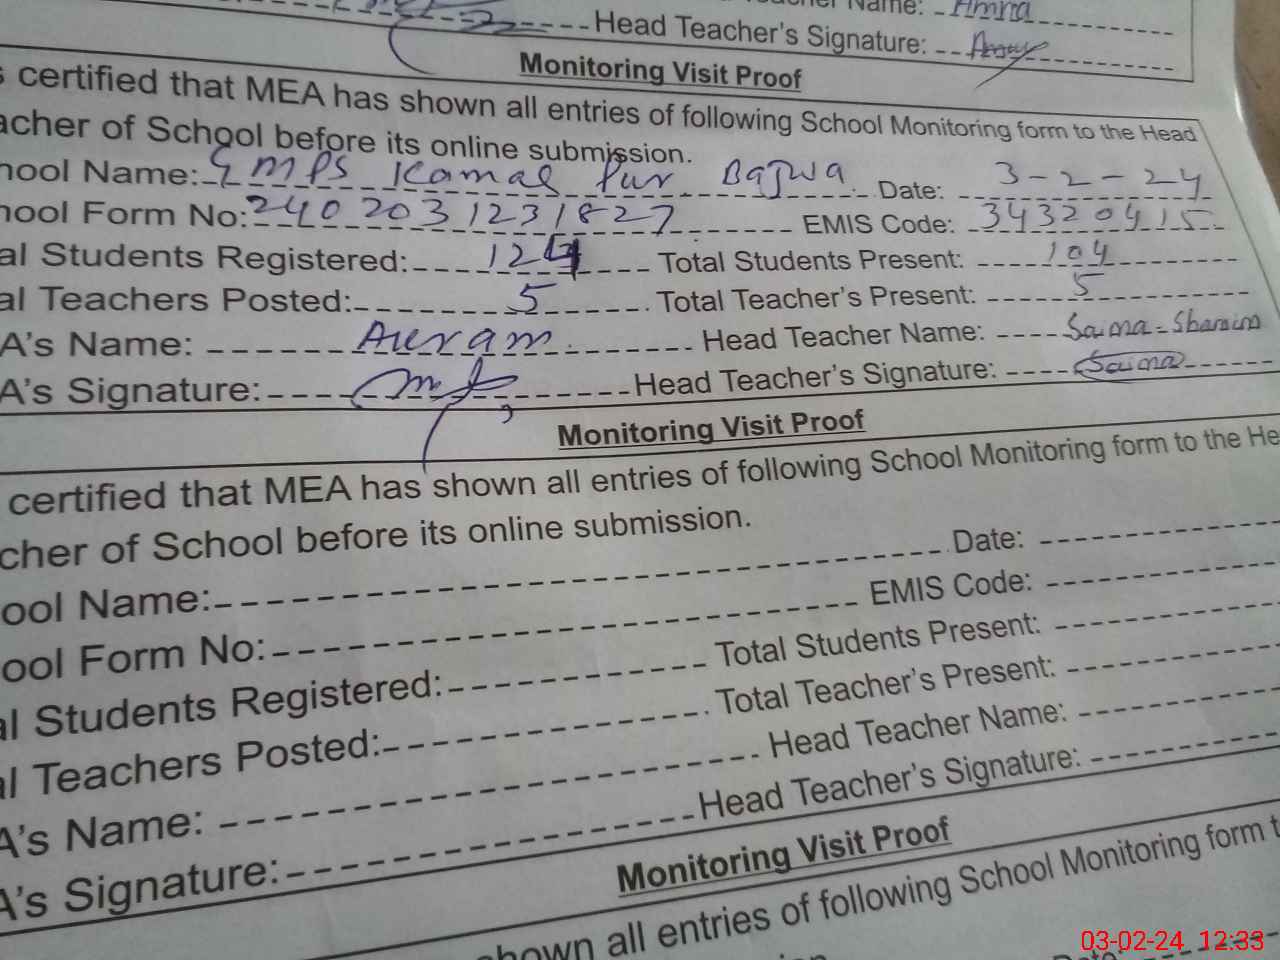 acher Name: Amna
Head Teacher's Signature:
Monitoring Visit Proof
s certified that MEA has shown all entries of following School Monitoring form to the Head
acher of School before its online submission.
hool Name: GMPS Kamal Pur Bajwa Date: 3-2-24
hool Form No: 2402031231827 EMIS Code: 34320415
al Students Registered: 124 Total Students Present: 104
al Teachers Posted: 5 Total Teacher's Present: 5
A's Name: Head Teacher Name: Saima Shamim
A's Signature: Head Teacher's Signature: Saima
Monitoring Visit Proof
certified that MEA has shown all entries of following School Monitoring form to the He
cher of School before its online submission.
ool Name: Date:
ool Form No: EMIS Code:
al Students Registered: Total Students Present:
al Teachers Posted: Total Teacher's Present:
A's Name: Head Teacher Name:
A's Signature: Head Teacher's Signature:
Monitoring Visit Proof
shown all entries of following School Monitoring form t
Date:
03-02-24 12:33